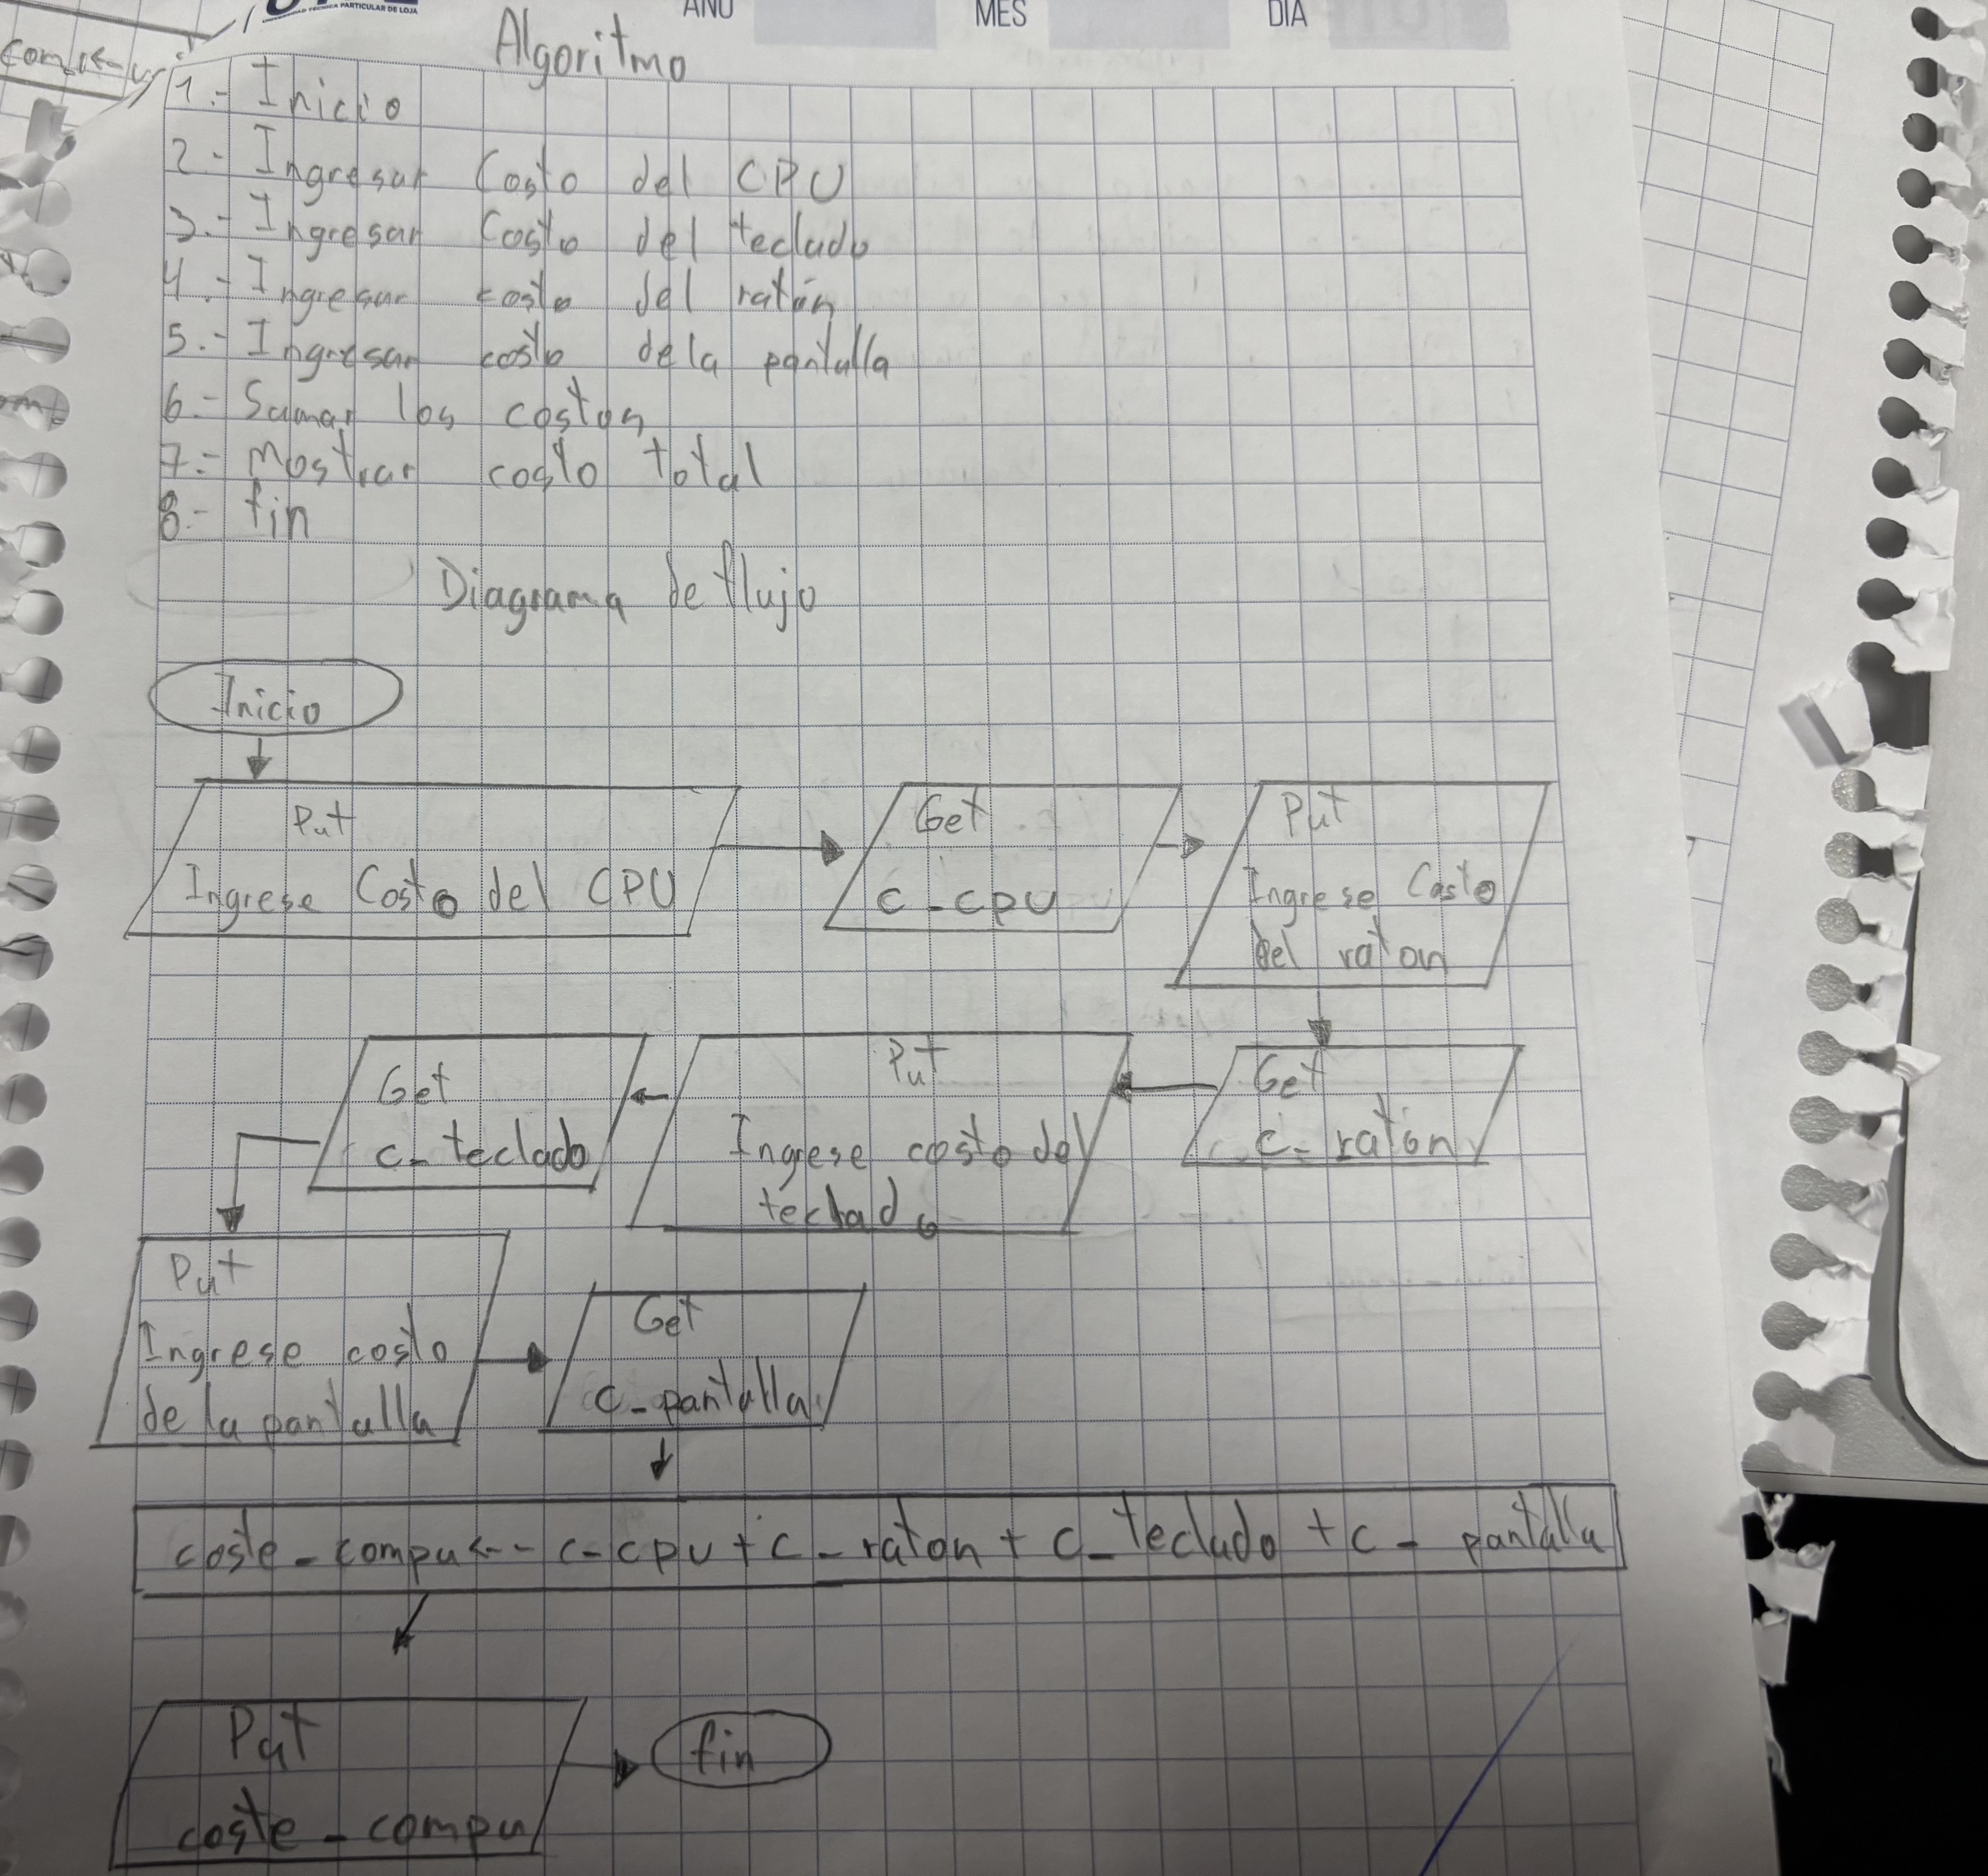 UNIVERSIDAD TÉCNICA PARTICULAR DE LOJA
AÑO MES DIA
Algoritmo
1.- Inicio
2.- Ingresar Costo del CPU
3.- Ingresar Costo del teclado
4.- Ingresar costo del ratón
5.- Ingresar costo dela pantalla
6.- Sumar los costos
7.- Mostrar costo total
8.- fin
Diagrama de flujo
Inicio
Put
Ingrese Costo del CPU
Get
c_cpu
Put
Ingrese Costo
del raton
Get
c_ratón
Put
Ingrese costo del
teclado
Get
c_teclado
Put
Ingrese costo
de la pantalla
Get
c_pantalla
coste_compu<-- c_cpu + c_raton + c_teclado + c_pantalla
Put
coste_compu
fin